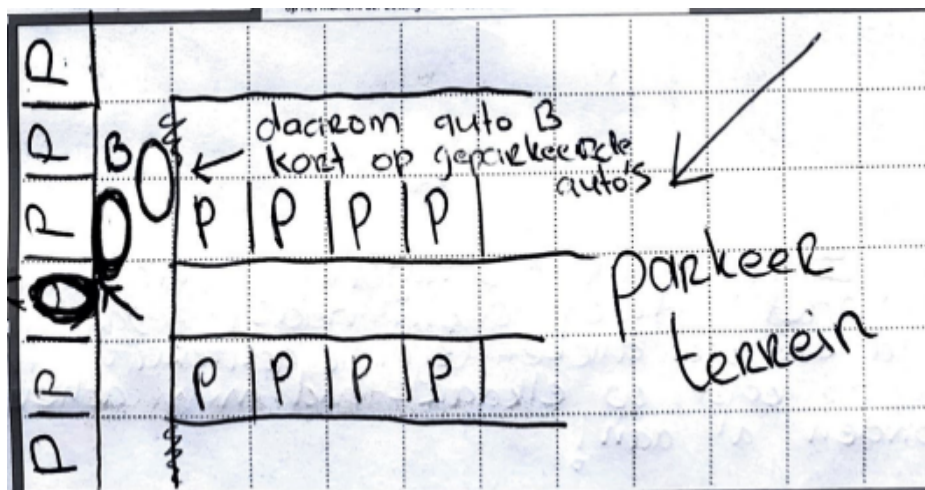 P
P
B
daarom auto B
kort op geparkeerde
auto's
P
P P P P
P
parkeer
terrein
P
P P P P
P